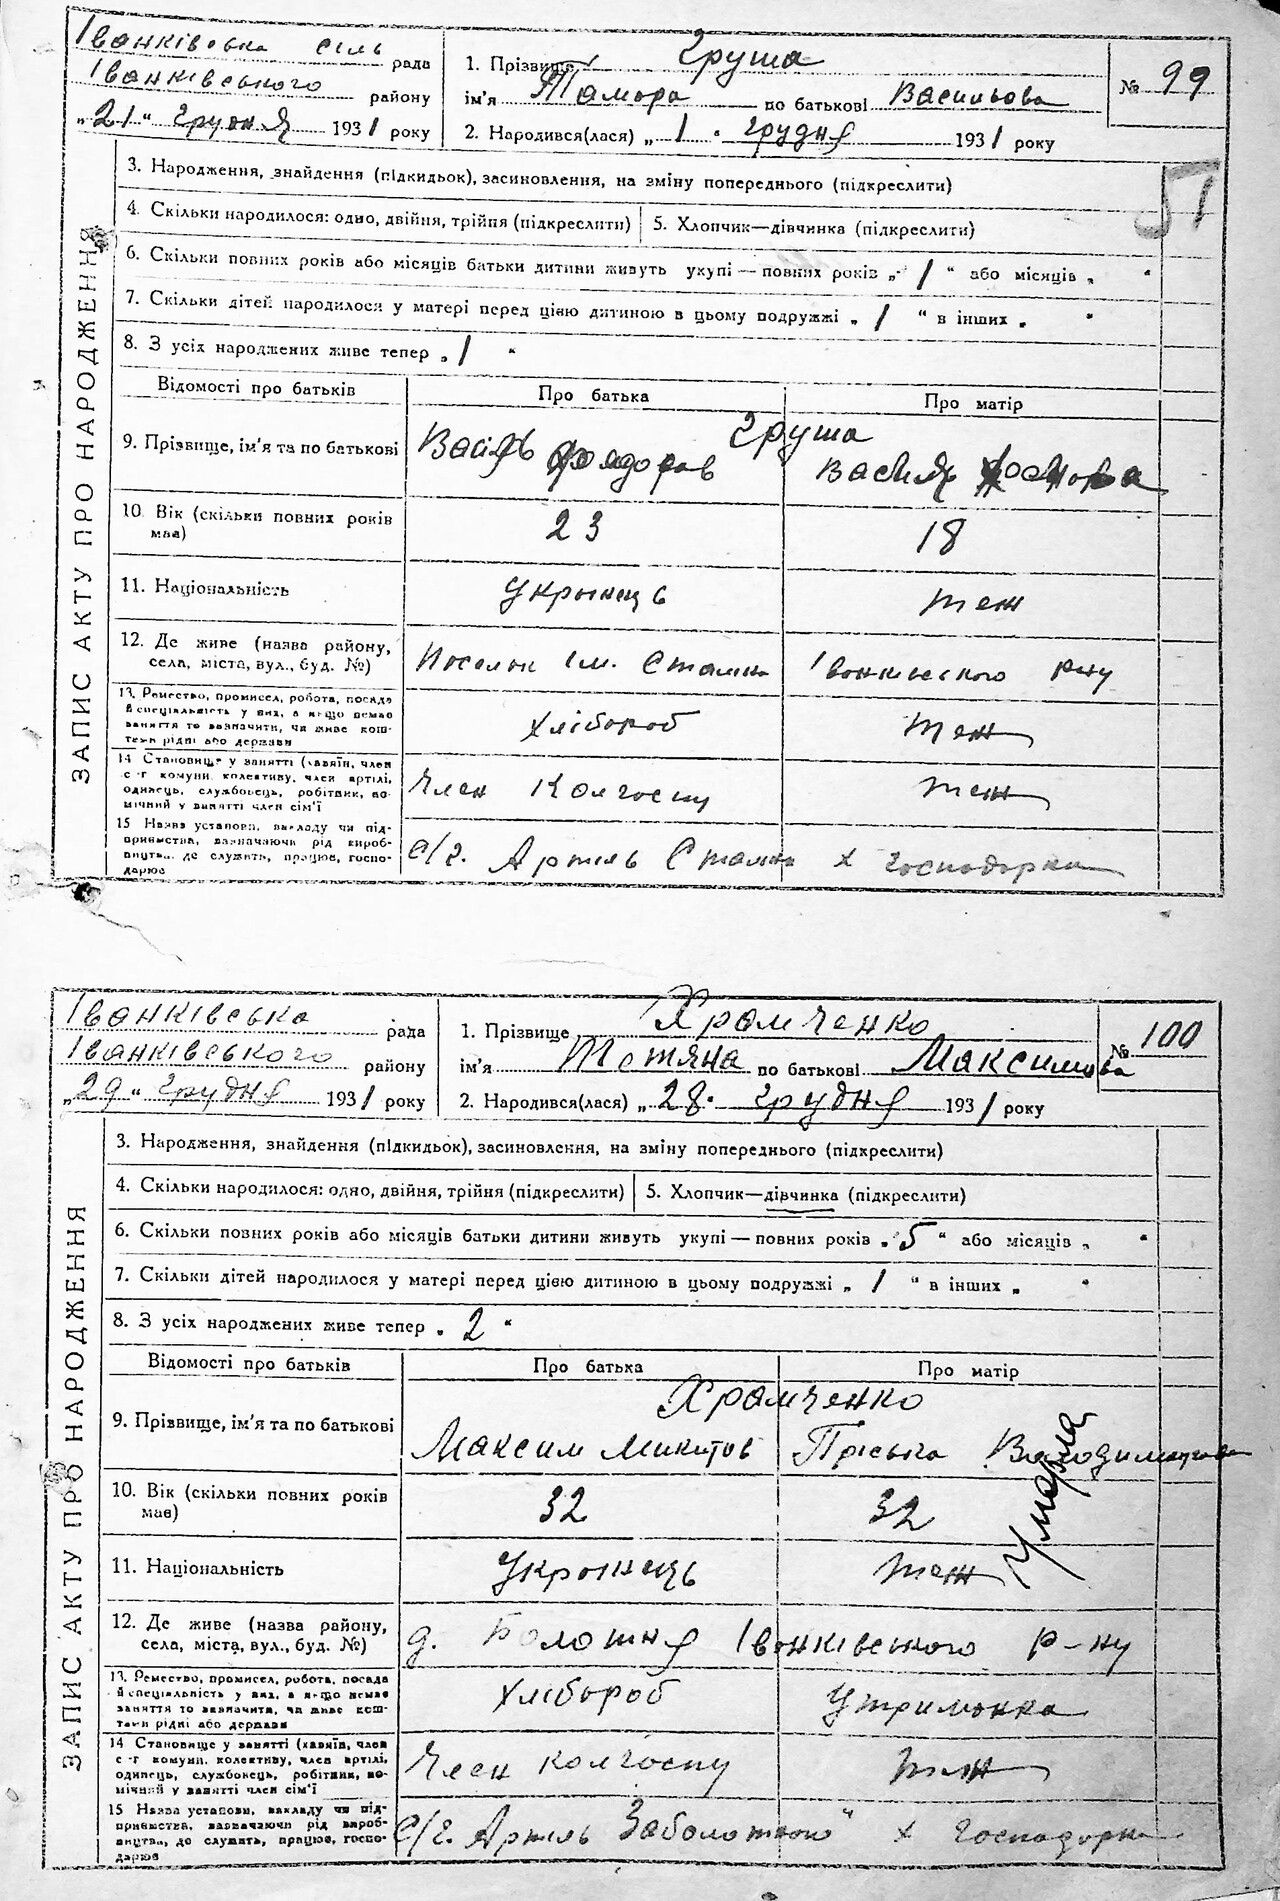 Іванківська сіль рада
Іванківського району
„21“ Грудня 1931 року
1. Прізвище Груша
ім'я Тамора по батькові Васильова
2. Народився(лася) „1“ грудня 1931 року
№ 99
51
ЗАПИС АКТУ ПРО НАРОДЖЕННЯ
3. Народження, знайдення (підкидьок), засиновлення, на зміну попереднього (підкреслити)
4. Скільки народилося: одно, двійня, трійня (підкреслити) 5. Хлопчик—дівчинка (підкреслити)
6. Скільки повних років або місяців батьки дитини живуть укупі — повних років „1“ або місяців „ “
7. Скільки дітей народилося у матері перед цією дитиною в цьому подружжі „1“ в інших „ “
8. З усіх народжених живе тепер „1“
Відомості про батьків Про батька Про матір
Груша
9. Прізвище, ім'я та по батькові Василь
10. Вік (скільки повних років має) 23 18
11. Національність Укрынець теж
12. Де живе (назва району, села, міста, вул., буд. №) Поселок ім. Сталина Іванківського р-ну
13. Ремество, промисел, робота, посада
й спеціальність у них, а якщо немає
заняття то зазначити, чи живе кош-
тами рідні або держави
Хлібороб теж
14 Становище у занятті (хазяїн, член
с-г комуни, колективу, член артілі,
одинець, службовець, робітник, по-
мічний у занятті член сім'ї
Член Колгоспу теж
15 Назва установи, закладу чи під-
приємства, зазначаючи рід вироб-
ництва, де служить, працює, госпо-
дарює
с/г. Артіль Сталина х Господорка
Іванківська рада
Іванківського району
„29“ Грудня 1931 року
1. Прізвище Храмченко
ім'я Тетяна по батькові Максимова
2. Народився(лася) „28“ Грудня 1931 року
№ 100
ЗАПИС АКТУ ПРО НАРОДЖЕННЯ
3. Народження, знайдення (підкидьок), засиновлення, на зміну попереднього (підкреслити)
4. Скільки народилося: одно, двійня, трійня (підкреслити) 5. Хлопчик—дівчинка (підкреслити)
6. Скільки повних років або місяців батьки дитини живуть укупі — повних років „5“ або місяців „ “
7. Скільки дітей народилося у матері перед цією дитиною в цьому подружжі „1“ в інших „ “
8. З усіх народжених живе тепер „2“
Відомості про батьків Про батька Про матір
Храмченко
9. Прізвище, ім'я та по батькові Максим Микитов Пріська Володимирова
Умерла
10. Вік (скільки повних років має) 32 32
11. Національність Украинець теж
12. Де живе (назва району, села, міста, вул., буд. №) д. Болотня Іванківського р-ну
13. Ремество, промисел, робота, посада
й спеціальність у них, а якщо немає
заняття то зазначити, чи живе кош-
тами рідні або держави
Хлібороб Утриманка
14 Становище у занятті (хазяїн, член
с-г комуни, колективу, член артілі,
одинець, службовець, робітник, по-
мічний у занятті член сім'ї
Член колгоспу теж
15 Назва установи, закладу чи під-
приємства, зазначаючи рід вироб-
ництва, де служить, працює, госпо-
дарює
с/г. Артіль х Господорка